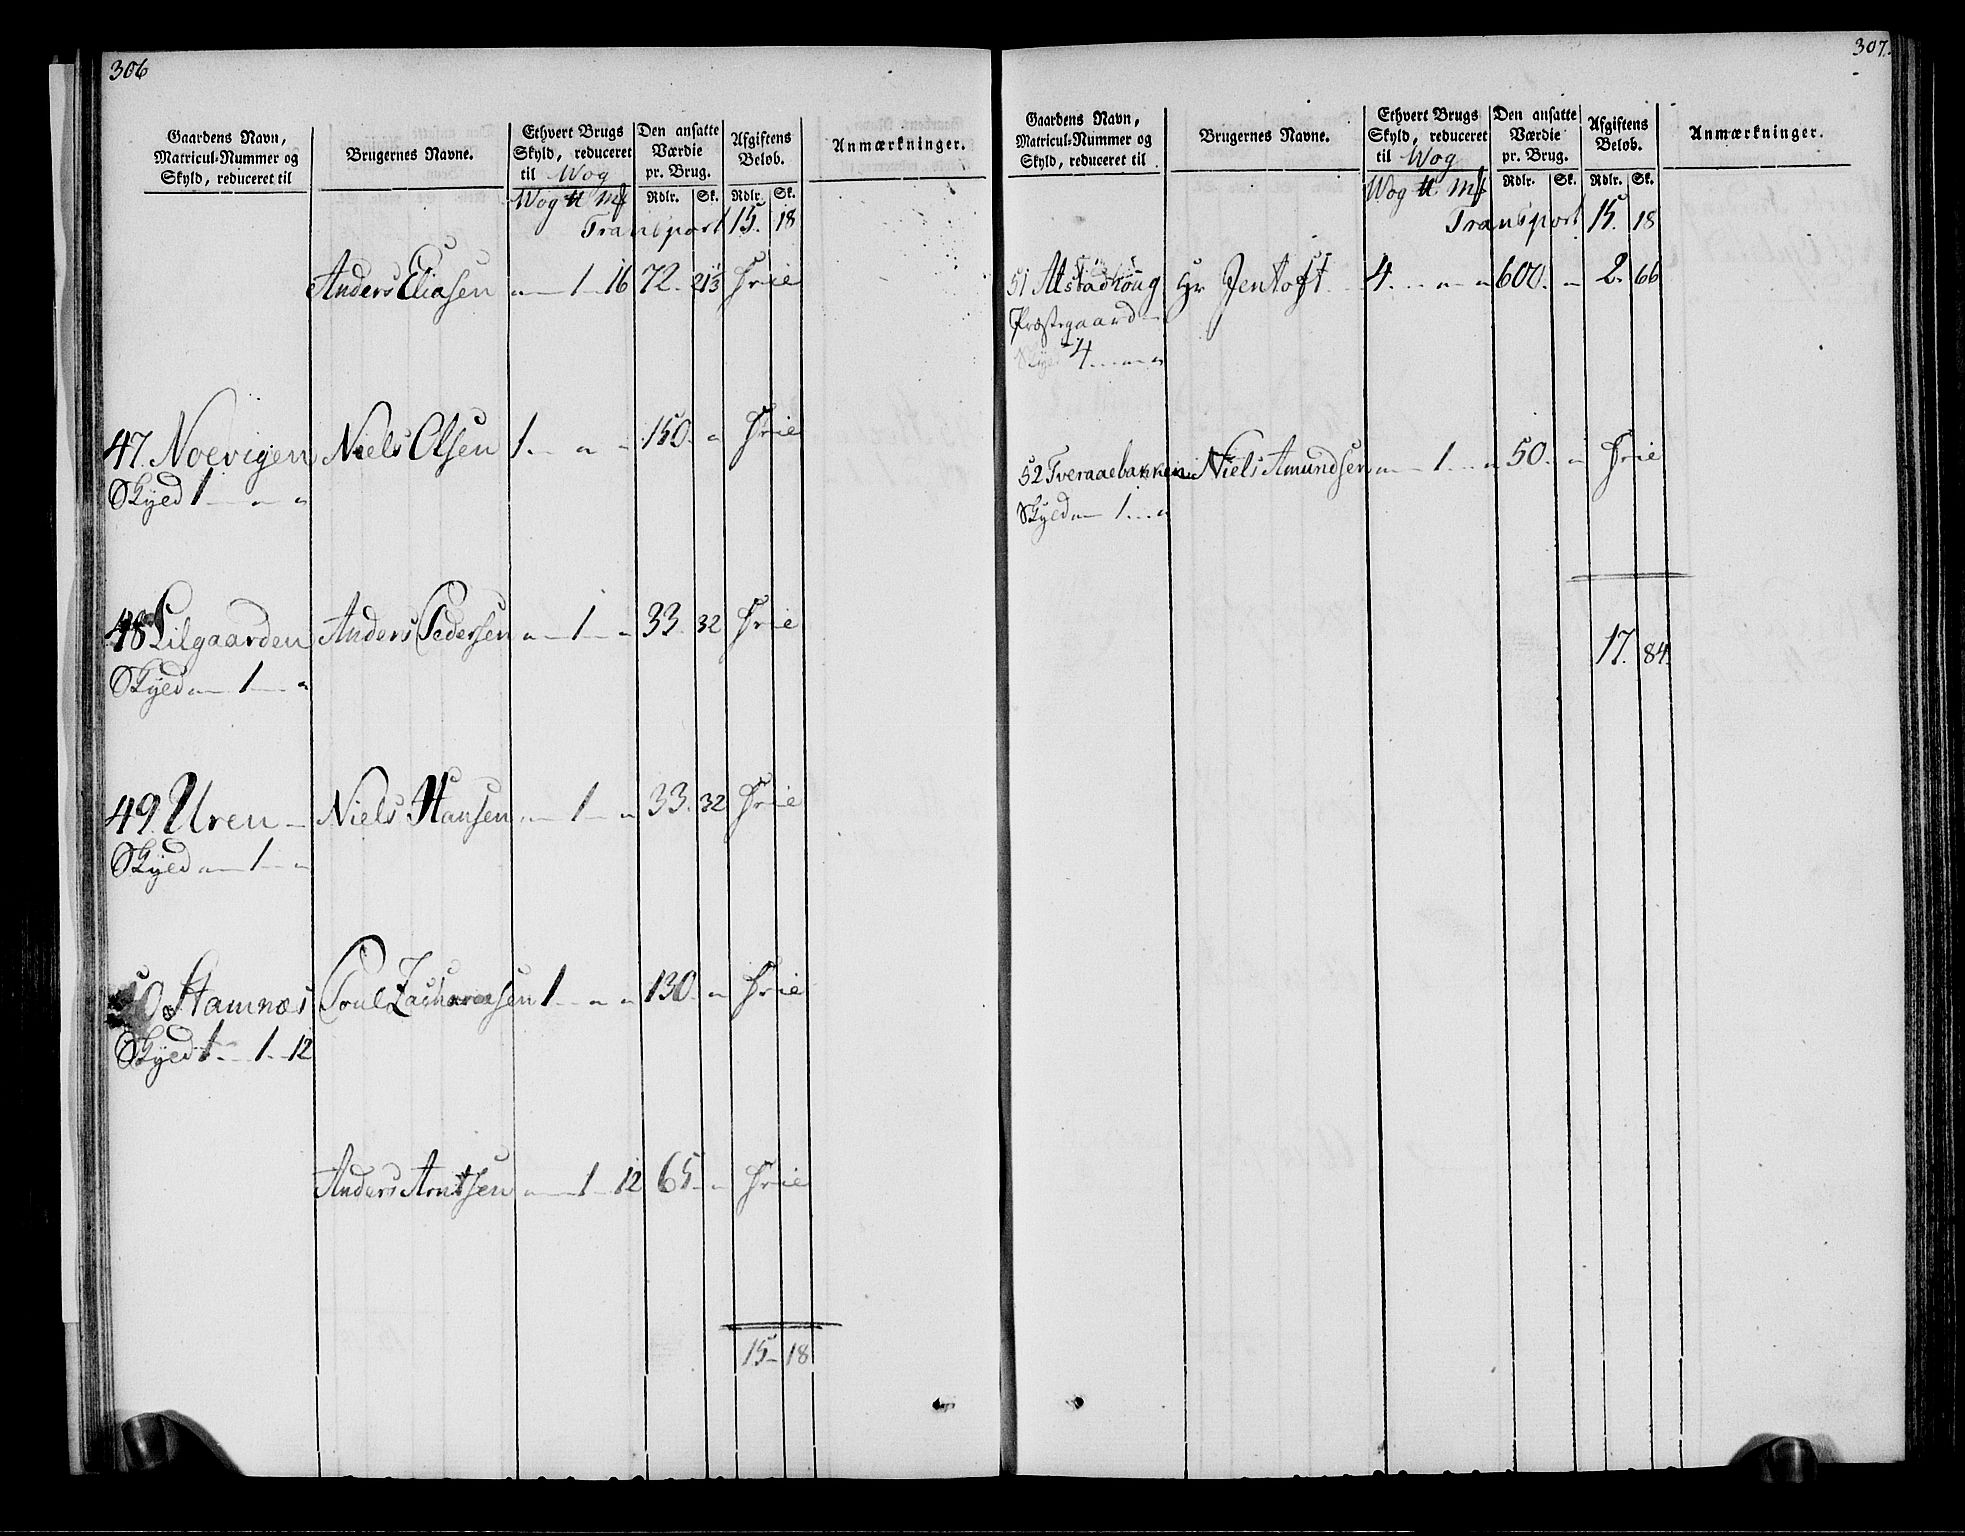 306
Gaardens Navn,
Matricul-Nummer og
Skyld, reduceret til
Brugernes Navne.
Ethvert Brugs
Skyld, reduceret
til Wog
Den ansatte
Værdie
pr. Brug.
Afgiftens
Beløb.
Anmærkninger.
Wog ℔ Mk Rdlr. Sk. Rdlr. Sk.
Transport 15. 18
Anders Eliasen " 1 16 72. 21⅓ Frie
47. Noevigen Niels Olsen 1. " " 150. " Frie
Skyld 1 " "
48 Lilgaarden Anders Pedersen " 1 " 33. 32 Frie
Skyld " 1 "
49. Uren Niels Hansen " 1 " 33. 32 Frie
Skyld " 1 "
50 Hamnæs Poul Zachariasen 1 " " 130. " Frie
Skyld 1. 1. 12
Anders Arntsen " 1 12 65. " Frie
15 18
307.
Gaardens Navn,
Matricul-Nummer og
Skyld, reduceret til
Brugernes Navne.
Ethvert Brugs
Skyld, reduceret
til Wog
Den ansatte
Værdie
pr. Brug.
Afgiftens
Beløb.
Anmærkninger.
Wog ℔ Mk Rdlr. Sk. Rdlr. Sk.
Transport 15. 18
51 Alstadhoug Hr Jentoft 4. " " 600. " 2. 66
Præstegaard
Skyld 4 " "
52 Tveraaebakken Niels Amundsen " 1 " 50. " Frie
Skyld " 1 "
17. 84.